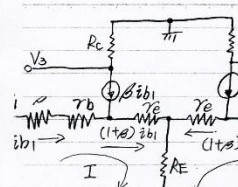 Rc
V3
βib1
i
rb
re
re
ib1
(1+β)ib1
(1+β
I
RE